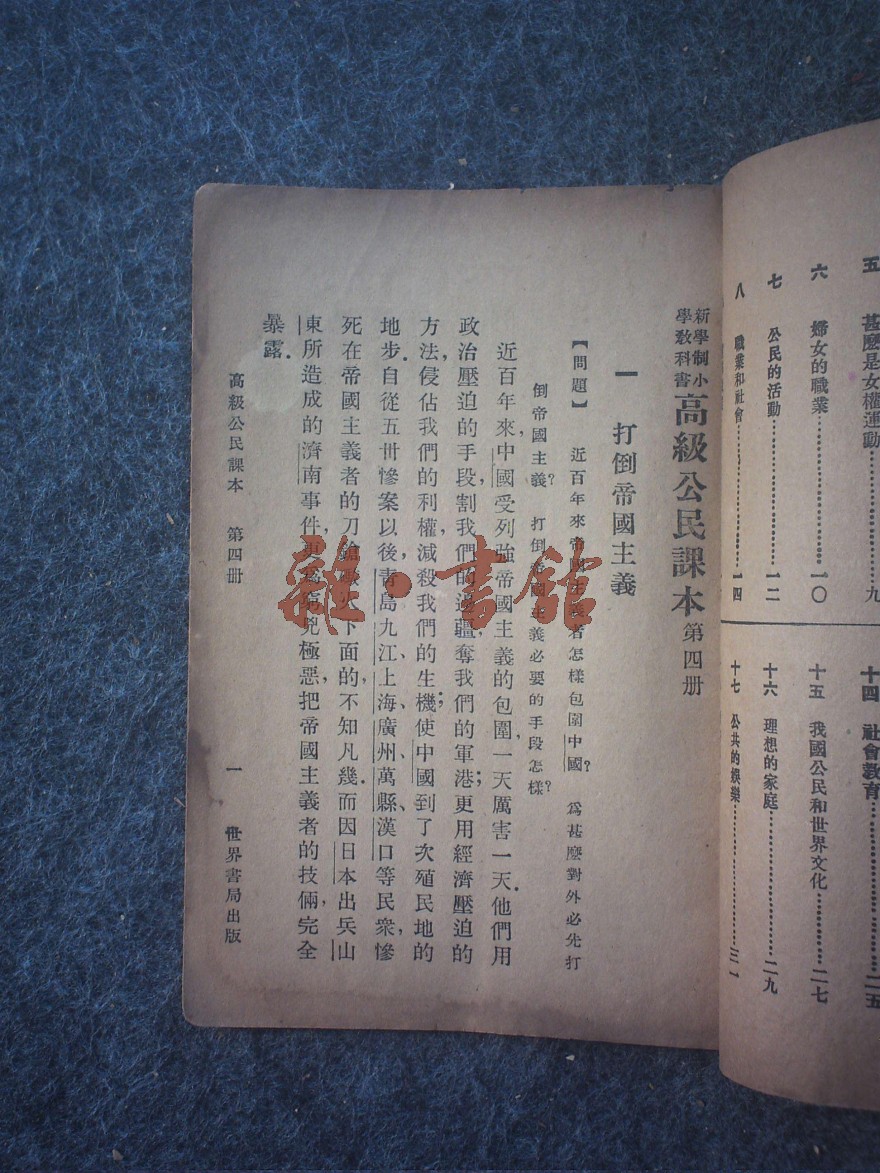 五 甚麽是女權運動………九
六 婦女的職業………一〇
七 公民的活動………一二
八 職業和社會………一四
十四 社會教育………二五
十五 我國公民和世界文化………二七
十六 理想的家庭………二九
十七 公共的娛樂………三一
新學制小學教科書 高級公民課本 第四册
一 打倒帝國主義
【問題】 近百年來帝國主義者怎樣包圍中國? 爲甚麽對外必先打
倒帝國主義? 打倒帝國主義必要的手段怎樣?
近百年來,中國受列強帝國主義的包圍,一天厲害一天.他們用
政治壓迫的手段,割我們的邊疆,奪我們的軍港;更用經濟壓迫的
方法,侵佔我們的利權,減殺我們的生機;使中國到了次殖民地的
地步.自從五卅慘案以後,青島、九江、上海、廣州、萬縣、漢口等民衆,慘
死在帝國主義者的刀鎗礮火下面的,不知凡幾.而因日本出兵山
東所造成的濟南事件,更爲窮兇極惡,把帝國主義者的技倆,完全
暴露.
高級公民課本 第四册 一 世界書局出版
雜·書館